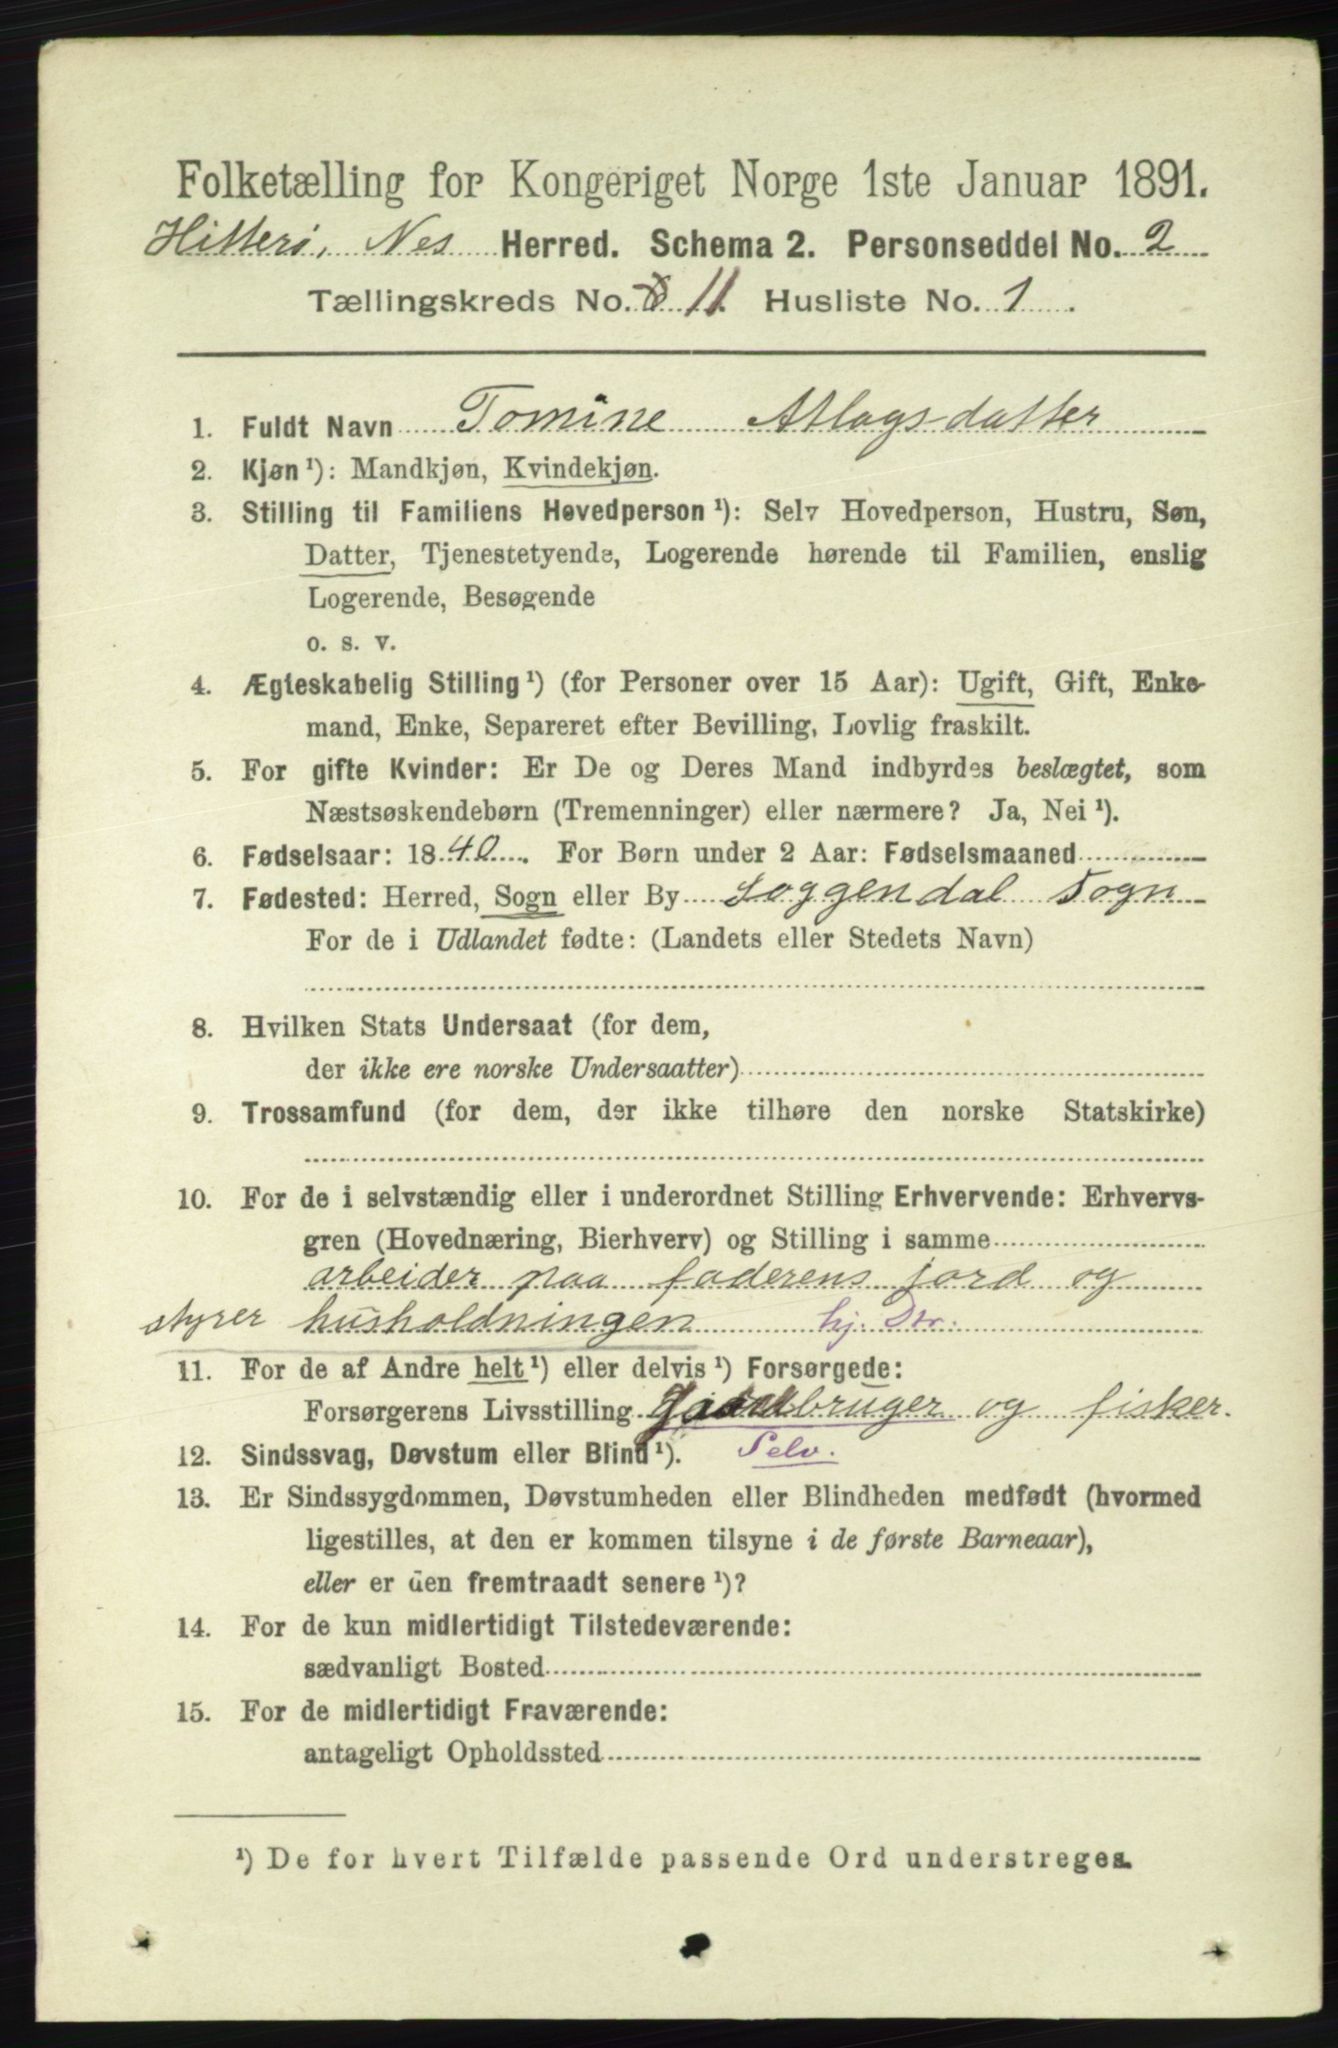 Folketælling for Kongeriget Norge 1ste Januar 1891.
Hitterø, Nes Herred. Schema 2. Personseddel No. 2
Tællingskreds No. 8 11. Husliste No. 1.
1. Fuldt Navn Tomine Atlagsdatter
2. Kjøn ¹): Mandkjøn, Kvindekjøn.
3. Stilling til Familiens Hovedperson ¹): Selv Hovedperson, Hustru, Søn,
Datter, Tjenestetyende, Logerende hørende til Familien, enslig
Logerende, Besøgende
o. s. v.
4. Ægteskabelig Stilling ¹) (for Personer over 15 Aar): Ugift, Gift, Enke-
mand, Enke, Separeret efter Bevilling, Lovlig fraskilt.
5. For gifte Kvinder: Er De og Deres Mand indbyrdes beslægtet, som
Næstsøskendebørn (Tremenninger) eller nærmere? Ja, Nei ¹).
6. Fødselsaar: 1840. For Børn under 2 Aar: Fødselsmaaned
7. Fødested: Herred, Sogn eller By Soggendal Sogn
For de i Udlandet fødte: (Landets eller Stedets Navn)
8. Hvilken Stats Undersaat (for dem,
der ikke ere norske Undersaatter)
9. Trossamfund (for dem, der ikke tilhøre den norske Statskirke)
10. For de i selvstændig eller i underordnet Stilling Erhvervende: Erhvervs-
gren (Hovednæring, Bierhverv) og Stilling i samme
arbeider paa faderens jord og
styrer husholdningen hj. Dtr.
11. For de af Andre helt ¹) eller delvis ¹) Forsørgede:
Forsørgerens Livsstilling Gaardbruger og fisker.
12. Sindssvag, Døvstum eller Blind ¹). Selv.
13. Er Sindssygdommen, Døvstumheden eller Blindheden medfødt (hvormed
ligestilles, at den er kommen tilsyne i de første Barneaar),
eller er den fremtraadt senere ¹)?
14. For de kun midlertidigt Tilstedeværende:
sædvanligt Bosted
15. For de midlertidigt Fraværende:
antageligt Opholdssted
¹) De for hvert Tilfælde passende Ord understreges.